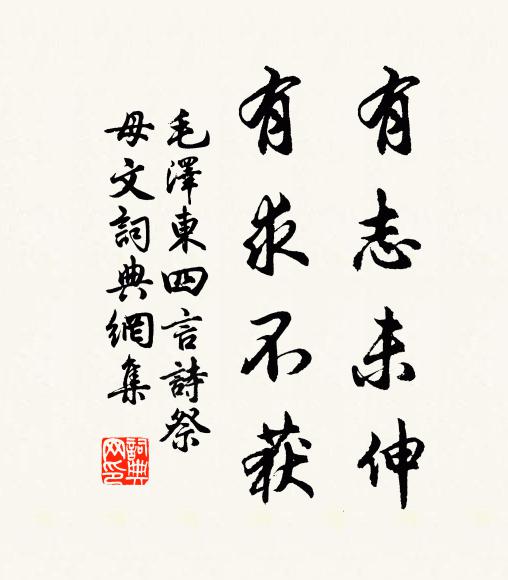 有志未伸
有求不获
毛澤東四言詩祭
母文詞典網集
詞典网印